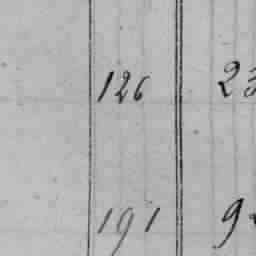 126 23
191 9